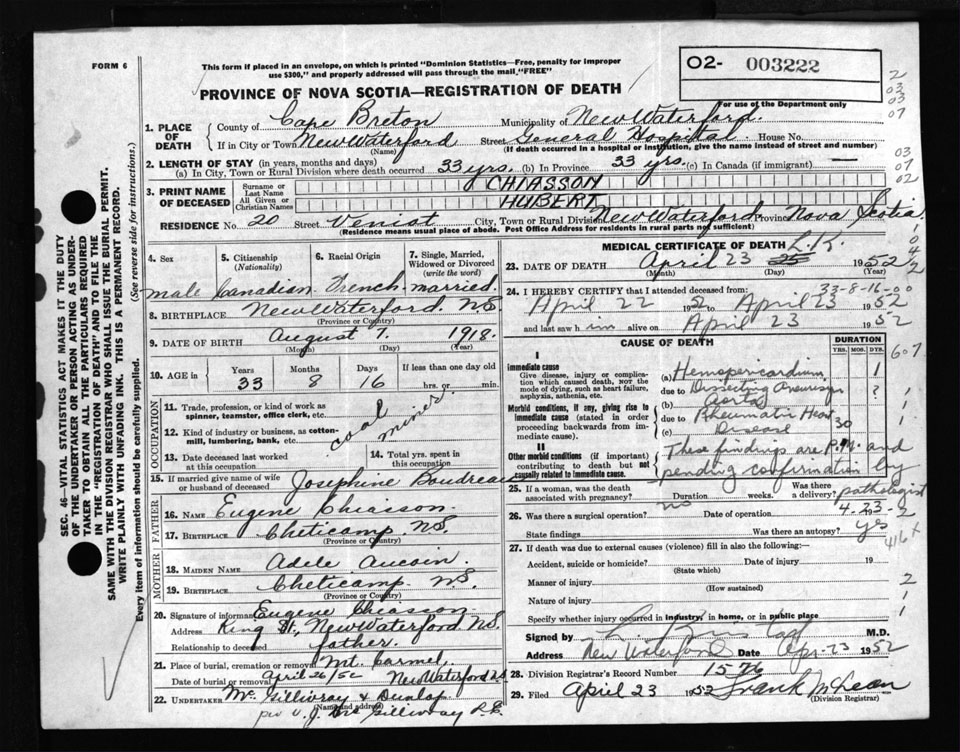 FORM 6
This form if placed in an envelope, on which is printed "Dominion Statistics—Free, penalty for improper
use $300," and properly addressed will pass through the mail "FREE"
PROVINCE OF NOVA SCOTIA—REGISTRATION OF DEATH
O2- 003222
For use of the Department only
2
03
03
07
03
07
02
1. PLACE OF DEATH
County of Cape Breton Municipality of New Waterford.
If in City or Town New Waterford Street General Hospital. House No.
(Name) (If death occurred in a hospital or institution, give the name instead of street and number)
2. LENGTH OF STAY (in years, months and days)
(a) In City, Town or Rural Division where death occurred 33 yrs. (b) In Province 33 yrs. (c) In Canada (if immigrant) —
3. PRINT NAME OF DECEASED
Surname or Last Name CHIASSON
All Given or Christian Names HUBERT
RESIDENCE No. 20 Street Veniot City, Town or Rural Division New Waterford Province Nova Scotia
(Residence means usual place of abode. Post Office Address for residents in rural parts not sufficient)
4. Sex 5. Citizenship (Nationality) 6. Racial Origin 7. Single, Married, Widowed or Divorced (write the word)
male Canadian French married.
8. BIRTHPLACE New Waterford N.S.
(Province or Country)
9. DATE OF BIRTH August 7. 1918.
(Month) (Day) (Year)
10. AGE in Years Months Days If less than one day old
33 8 16 hrs. or min.
OCCUPATION
11. Trade, profession, or kind of work as spinner, teamster, office clerk, etc.
12. Kind of industry or business, as cotton-mill, lumbering, bank, etc.
coal miner.
13. Date deceased last worked at this occupation
14. Total yrs. spent in this occupation
15. If married give name of wife or husband of deceased Josephine Boudreau
FATHER
16. NAME Eugene Chiasson.
17. BIRTHPLACE Cheticamp N.S.
(Province or Country)
MOTHER
18. MAIDEN NAME Adele Aucoin.
19. BIRTHPLACE Cheticamp N.S.
(Province or Country)
20. Signature of informant Eugene Chiasson
Address King St., New Waterford N.S.
Relationship to deceased father.
21. Place of burial, cremation or removal Mt. Carmel,
Date of burial or removal April 26/52 New Waterford N.S.
22. UNDERTAKER McGillivray & Dunlap
(Name and address)
per J. McGillivray
MEDICAL CERTIFICATE OF DEATH
23. DATE OF DEATH April 23 25 1952
(Month) (Day) (Year)
33-8-16-00
24. I HEREBY CERTIFY that I attended deceased from:
April 22 52 April 23 1952
and last saw him alive on April 23 1952
CAUSE OF DEATH DURATION
YRS. MOS. DYS.
I
Immediate cause
Give disease, injury or complication which caused death, not the mode of dying, such as heart failure, asphyxia, asthenia, etc.
(a) Hemopericardium 1
due to Dissecting Aneurysm Aorta ?
Morbid conditions, if any, giving rise to immediate cause (stated in order proceeding backwards from immediate cause).
due to Rheumatic Heart
(c) Disease 30
II
Other morbid conditions (if important) contributing to death but not causally related to immediate cause.
These findings are P.M. and
pending confirmation by
pathologist
25. If a woman, was the death associated with pregnancy? no Duration weeks. Was there a delivery?
26. Was there a surgical operation? Date of operation 4-23-2
State findings Was there an autopsy? yes
416x
27. If death was due to external causes (violence) fill in also the following:—
Accident, suicide or homicide? Date of injury 19
(State which)
Manner of injury
(How sustained)
Nature of injury
Specify whether injury occurred in industry, in home, or in public place
Signed by M.D.
Address New Waterford Date Apr-23 1952
28. Division Registrar's Record Number 1576
29. Filed April 23 1952 Frank McLean
(Division Registrar)
SEC. 46—VITAL STATISTICS ACT MAKES IT THE DUTY
OF THE UNDERTAKER OR PERSON ACTING AS UNDER-
TAKER TO OBTAIN ALL THE PARTICULARS REQUIRED
IN THE "REGISTRATION OF DEATH" AND TO FILE THE
SAME WITH THE DIVISION REGISTRAR WHO SHALL ISSUE THE BURIAL PERMIT.
WRITE PLAINLY WITH UNFADING INK. THIS IS A PERMANENT RECORD.
Every item of information should be carefully supplied. (See reverse side for instructions.)